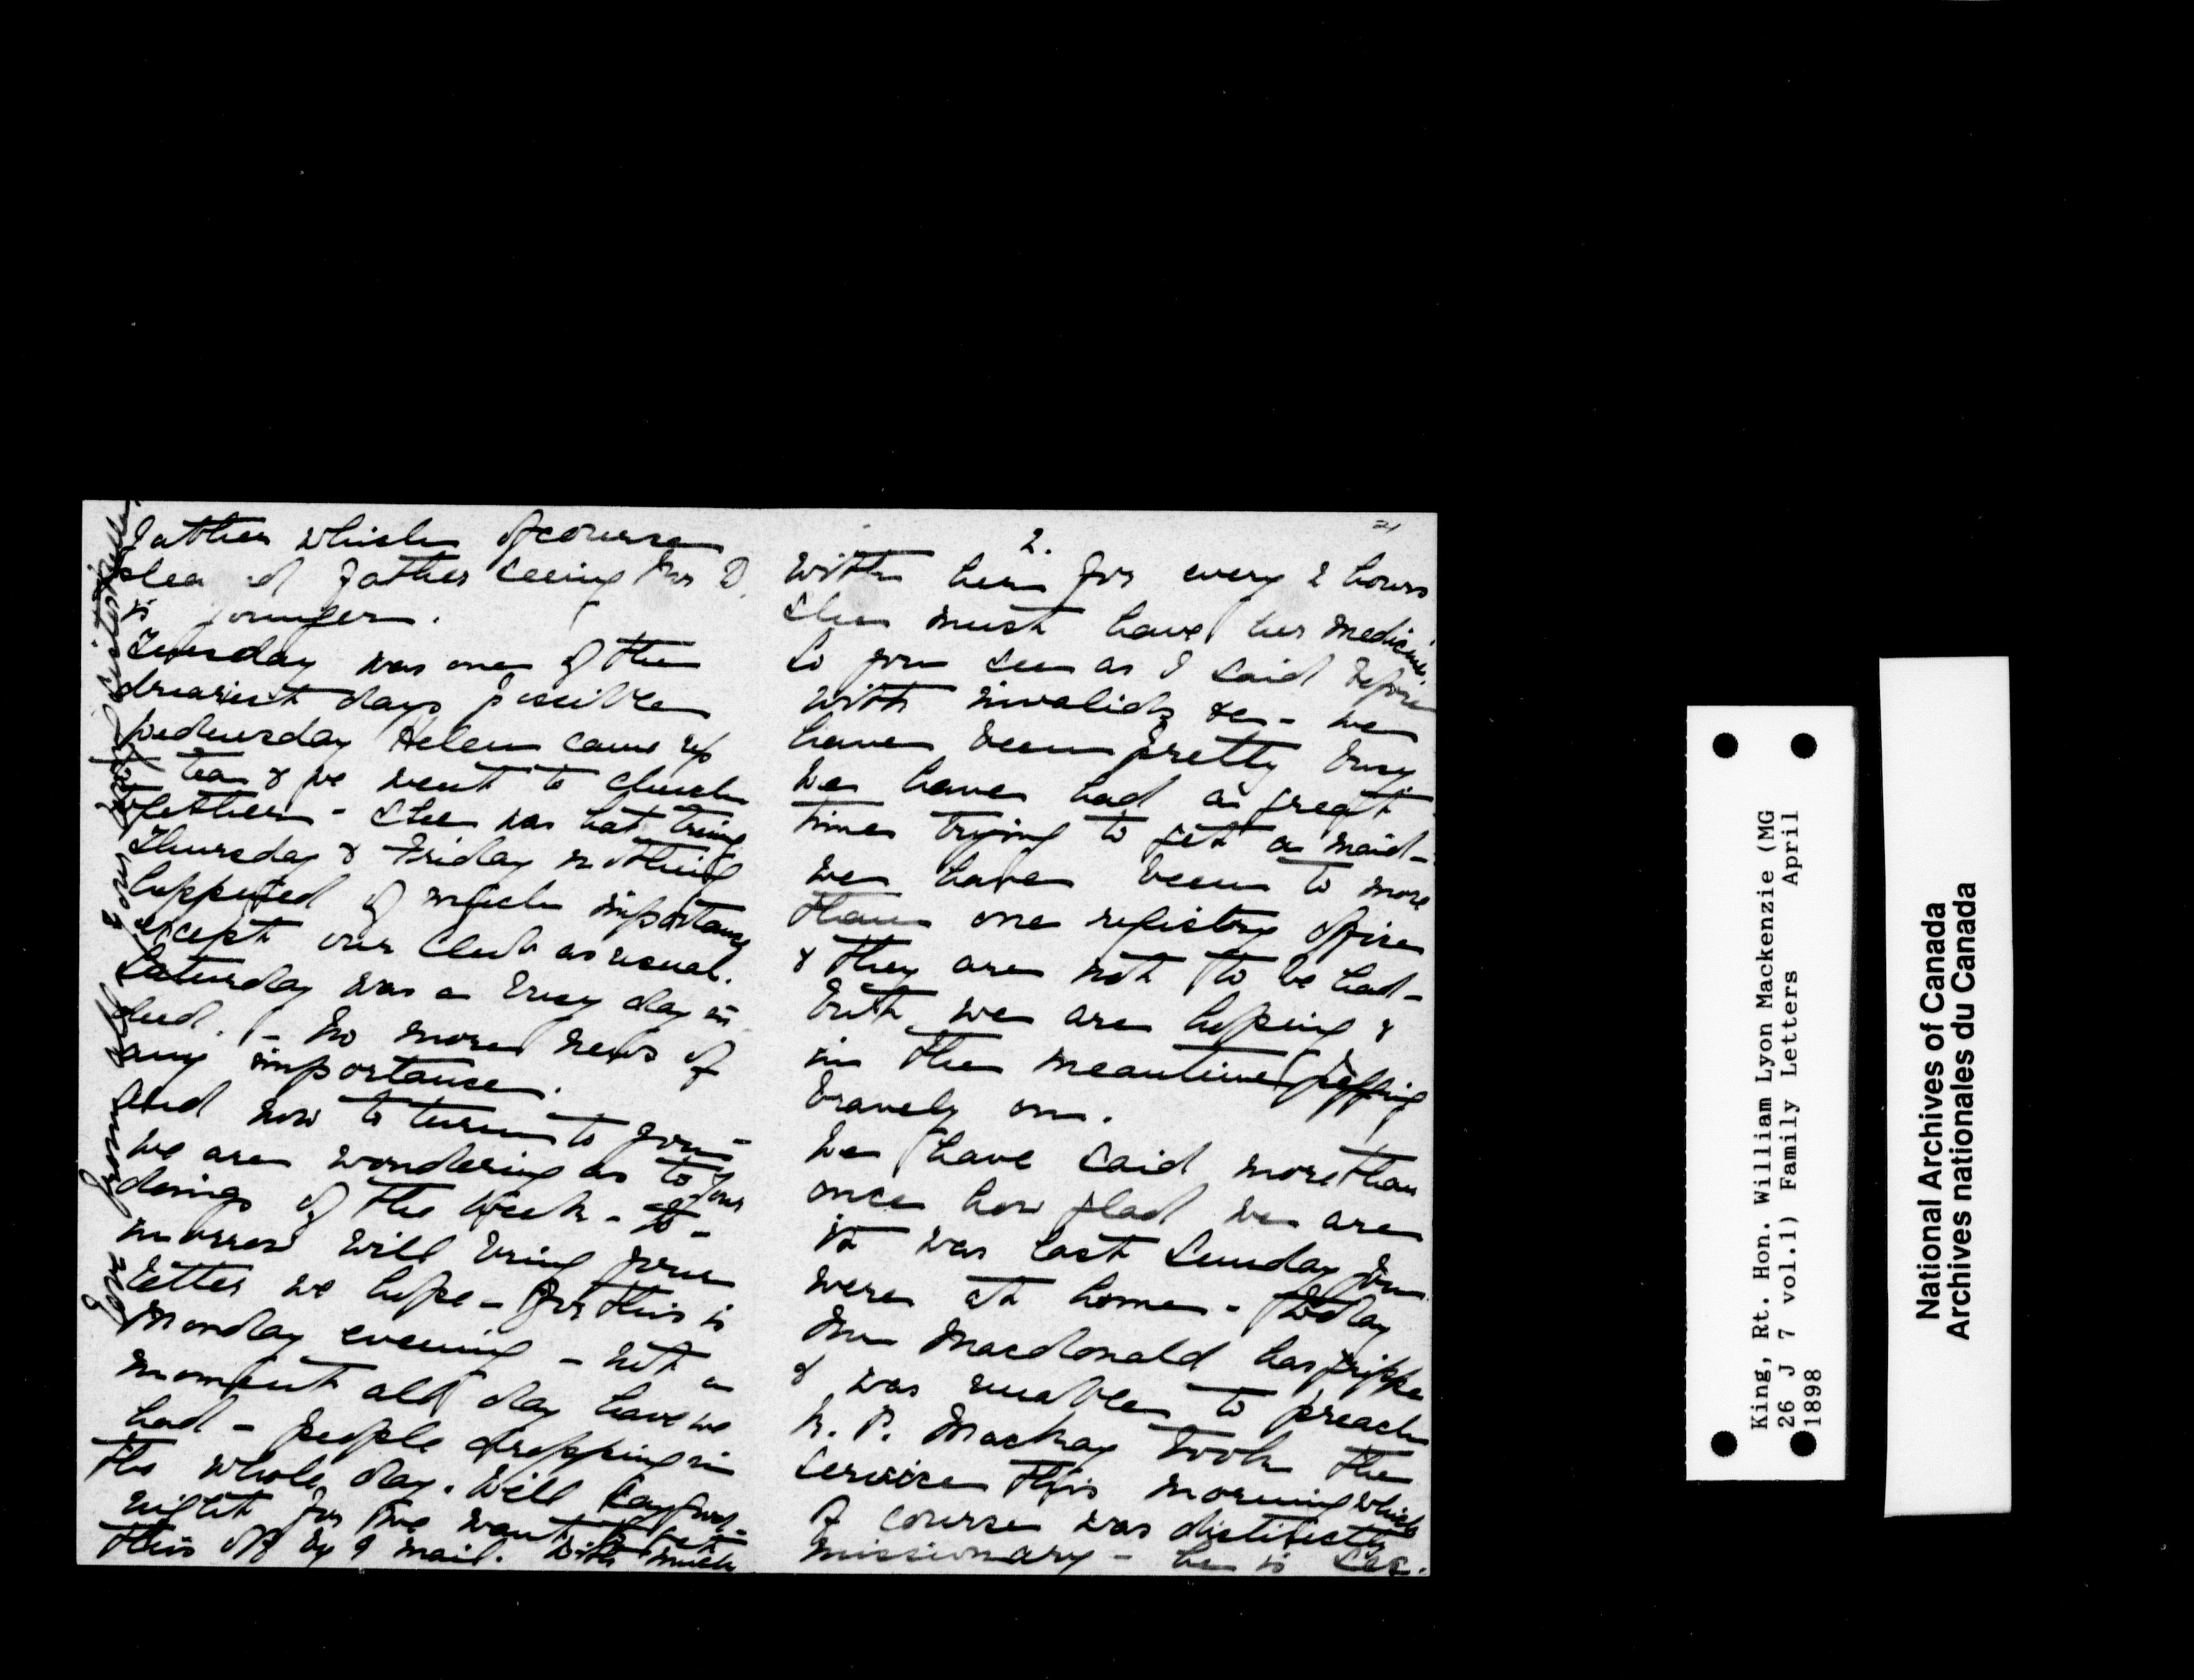 father which of course
plea d father seeing Mrs D.
is younger.
Tuesday was one of the
dreariest days possible
Wednesday Helen came up
to tea & we went to church
together - She was hat triming
Thursday & Friday nothing
happened of much importance
except our Club as usual.
Saturday was a busy day in
deed. - No more news of
any importance.
And now to turn to you -
we are wondering as to your
doings of the week - to-
morrow will bring your
letter we hope - for this is
Monday evening - not a
moment all day have we
had - people dropping in
the whole day. Will say good-
night for we want to get
this off by 9 mail. With much
love from all Your loving sister
21
2.
with her for every 2 hours
she must have her medicine.
So you see as I said before
with invalids &c - we
have been pretty busy
We have had a great
time trying to get a maid -
we have been to more
than one registry office
& they are not to be had -
but we are hoping &
in the meantime pegging
bravely on.
We have said more than
once how glad we are
it was last Sunday you
were at home - today
Mr Macdonald has grippe
& was unable to preach
R. P. Mackay took the
service this morning which
of course was distinctly
missionary - he is Sec.
King, Rt. Hon. William Lyon Mackenzie (MG
26 J 7 vol.1) Family Letters April
1898
National Archives of Canada
Archives nationales du Canada